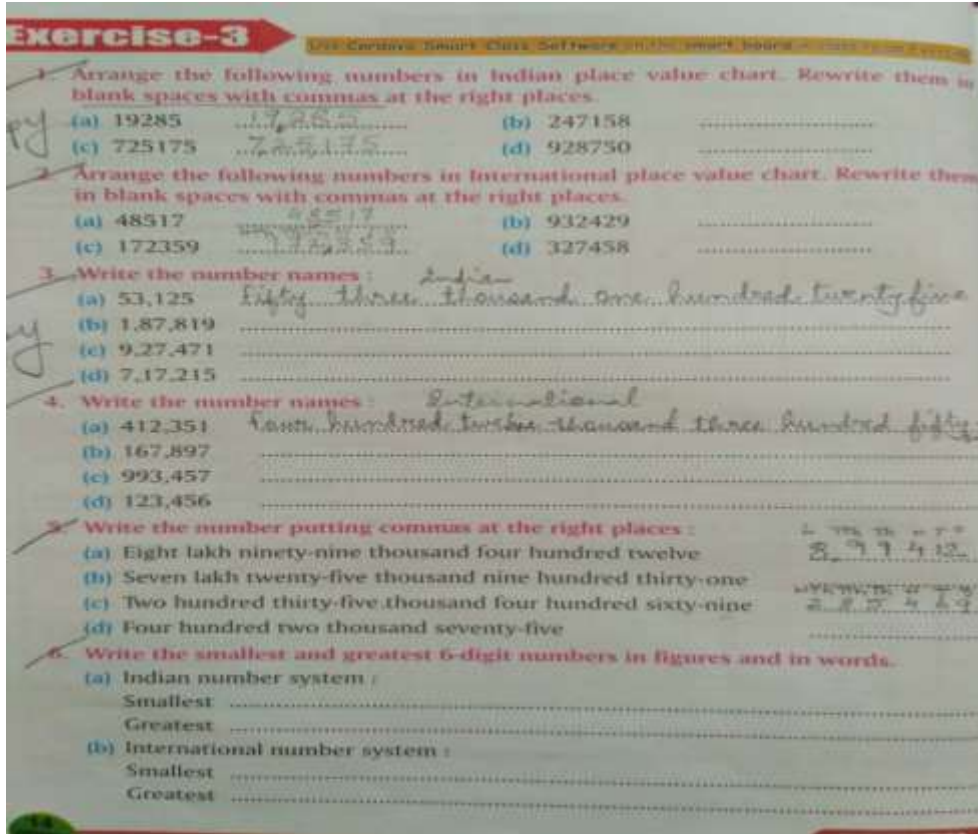 Exercise-3
Use Cordova Smart Class Software on the smart board in class
1. Arrange the following numbers in Indian place value chart. Rewrite them in
blank spaces with commas at the right places.
py
(a) 19285 19,285 (b) 247158
(c) 725175 7,25,175 (d) 928750
2. Arrange the following numbers in International place value chart. Rewrite them
in blank spaces with commas at the right places.
(a) 48517 48517 (b) 932429
(c) 172359 (d) 327458
3. Write the number names : Indian
(a) 53,125 fifty three thousand one hundred twenty five
(b) 1,87,819
(c) 9,27,471
(d) 7,17,215
4. Write the number names : International
(a) 412,351 four hundred twelve thousand three hundred fifty
(b) 167,897
(c) 993,457
(d) 123,456
5. Write the number putting commas at the right places :
(a) Eight lakh ninety-nine thousand four hundred twelve 8,99412
(b) Seven lakh twenty-five thousand nine hundred thirty-one
(c) Two hundred thirty-five thousand four hundred sixty-nine
(d) Four hundred two thousand seventy-five
6. Write the smallest and greatest 6-digit numbers in figures and in words.
(a) Indian number system :
Smallest
Greatest
(b) International number system :
Smallest
Greatest
14